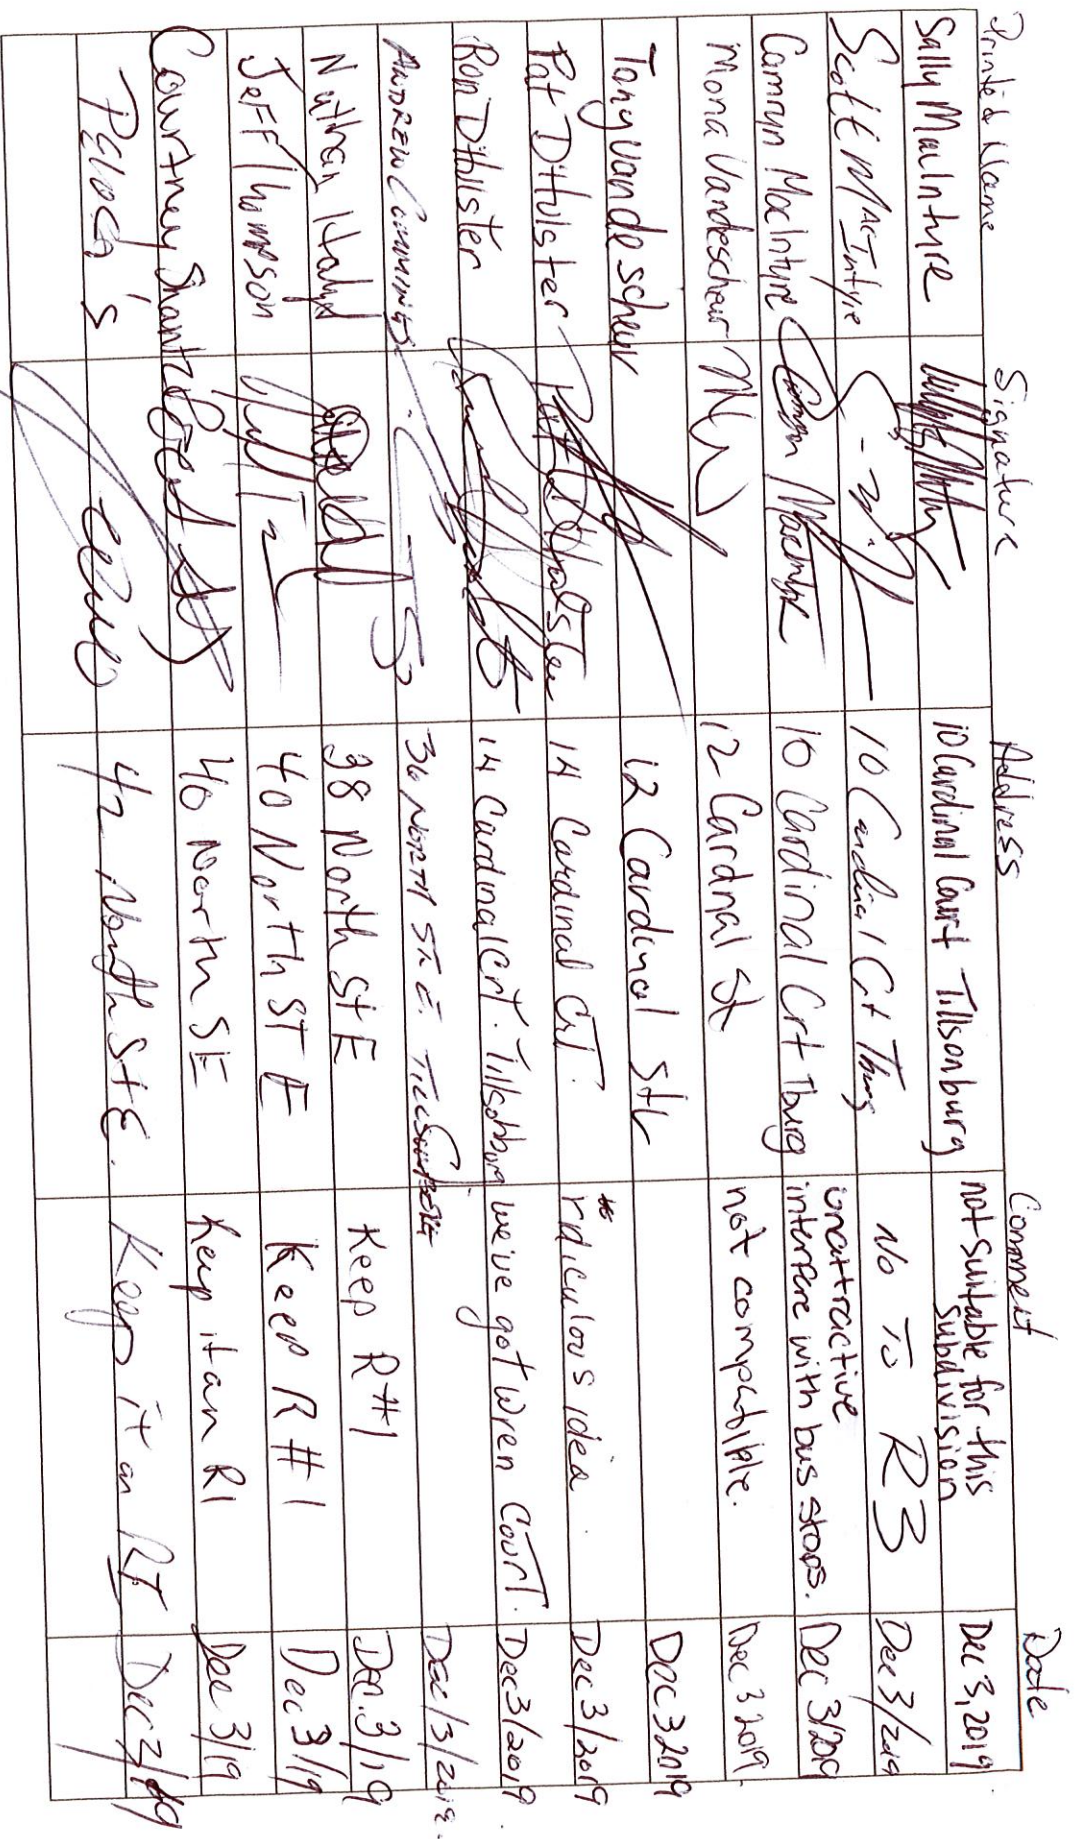 Printed Name Signature Address Comment Date
Sally MacIntyre 10 Cardinal Court Tillsonburg not suitable for this subdivision Dec 3, 2019
Scott MacIntyre 10 Cardinal Crt Tburg No To R3 Dec 3/2019
Camryn MacIntyre Camryn MacIntyre 10 Cardinal Crt Tburg unattractive interfere with bus stops. Dec 3/2019
Mona Vandescheur 12 Cardinal St not compatible. Dec 3 2019
Tony Vandescheur 12 Cardinal St Dec 3 2019
Pat DHulster Pat DHulster 14 Cardinal Crt. rdiculous idea. Dec 3/2019
Ron DHulster 14 Cardinal Crt. Tillsonburg we've got Wren Court. Dec 3/2019
ANDREW CUMMINGS 36 NORTH ST E. Dec/3/2019.
Nathan 38 North St E Keep R#1 Dec.3/19
Jeff Thompson 40 North ST E Keep R#1 Dec 3/19
Courtney Shantz 40 North S E Keep it an R1 Dec 3/19
42 North St E. Keep it an R1 Dec 3/19